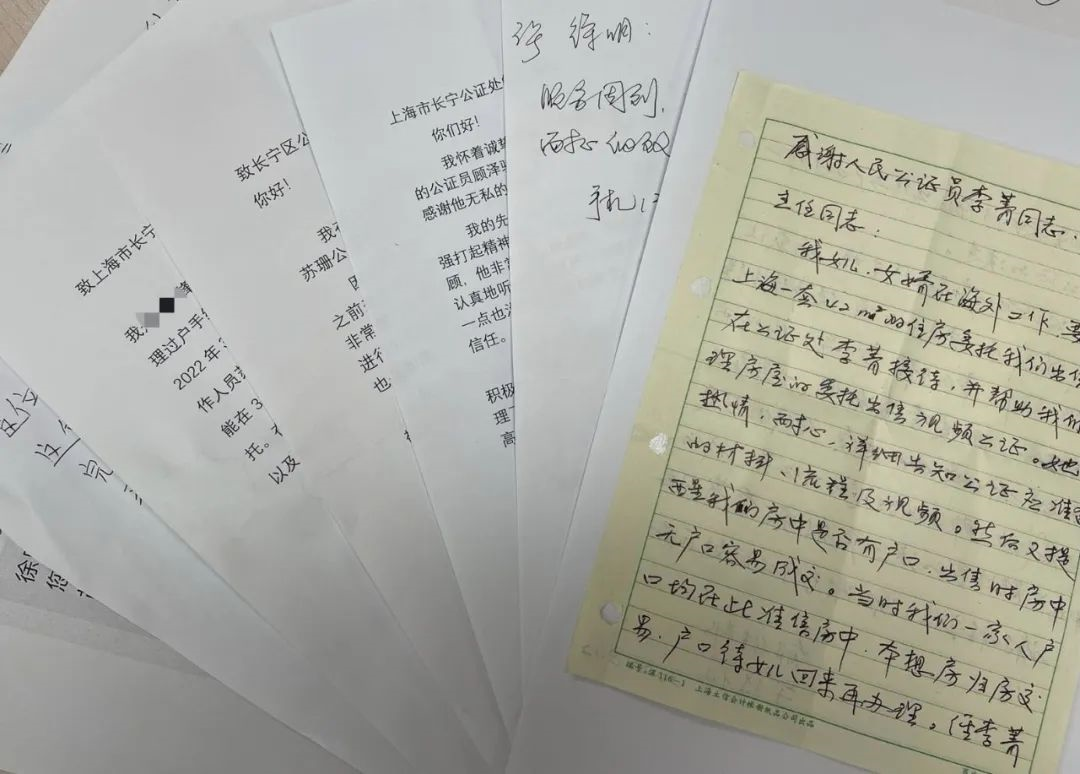 徐
您
区公
这
完
致上海市长宁
我
理过户手续
2022年3
作人员
能在3
托。
以及
致长宁区公
你好!
我
苏珊公
之前
非常
进行
也
上海市长宁公证处
你们好!
我怀着诚挚
的公证员顾泽
感谢他无私的
我的先
强打起精神
顾,他非常
认真地听
一点也
信任。
积极
理
高
徐明:
服务周到,
而耐心细致
手机
感谢人民公证员李菁同志.
主任同志:
我女儿、女婿在海外工作,要
上海一套42m²的住房委托我们出售
在公证处李菁接待,并帮助我们
理房屋的委托出售视频公证。她
热情、耐心、详细告知公证应准备
的材料、流程及视频。然后又提
出售时房中
无户口容易成交。当时我们一家人户
口均在此准售房中,本想房归房交
易,户口待女儿回来再办理。经李菁
编号:源116-1 上海立信会计账册纸品公司出品